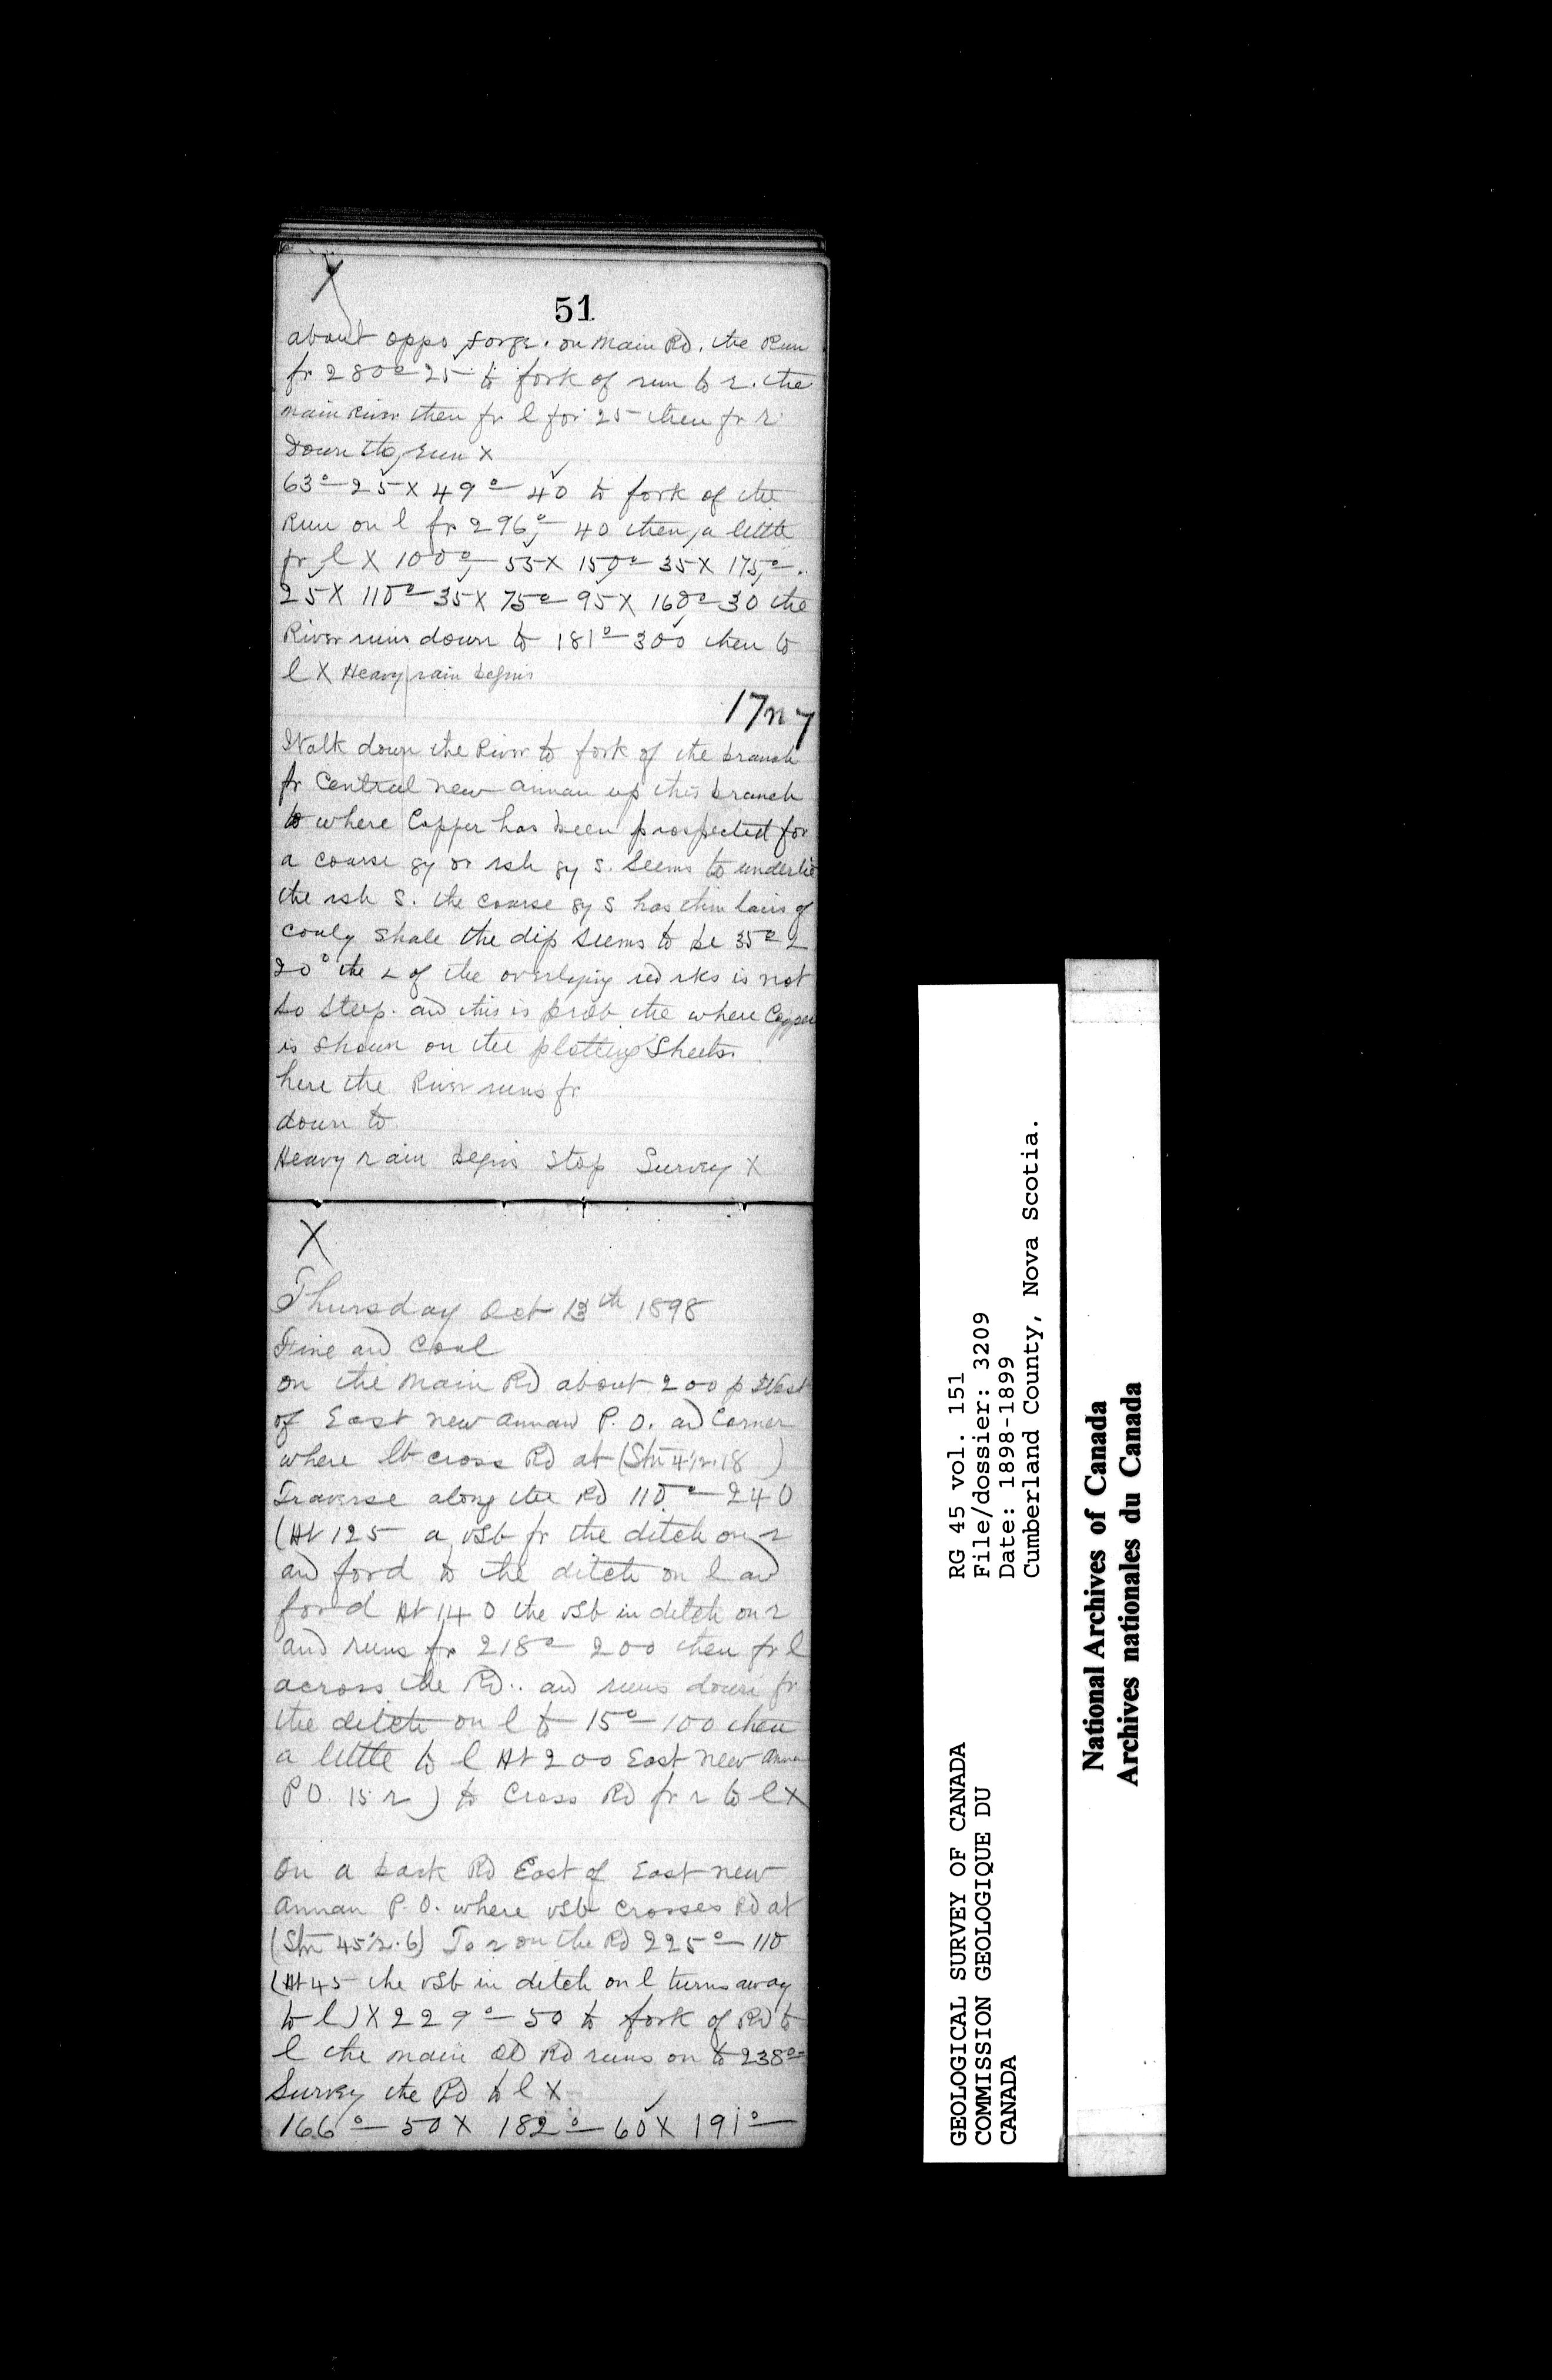 X
51
about oppo forge. on Main Rd. the Run
fr 280°–25 to fork of run to r. the
main River then fr l for 25 then fr r
Down the run X
63°–25 X 49°–40 to fork of the
Run on l fr 296°–40 then a little
fr l X 100°–55 X 150°–35 X 175°–
25 X 110°–35 X 75°–95 X 160°–30 the
River runs down to 181°–300 then to
l X Heavy rain begins
17
Walk down the River to fork of the branch
fr Central new annan up this branch
to where Copper has been prospected for
a coarse gy or rsh gy s. seems to underlie
the rsh S. the coarse gy s has thin lairs of
coaly shale the dip seems to be 35° ∠
20° the ∠ of the overlying red rks is not
so steep. and this is prob the where Copper
is shown on the plotting Sheets.
here the River runs fr
down to
Heavy rain begins stop Survey X
X
Thursday Oct 13th 1898
Fine and Cool
on the Main Rd about 200 p West
of East new annan P. O. and Corner
where lb cross Rd at (Stn 41/2.18)
Traverse along the Rd 110°–240
(At 125 a vsb fr the ditch on r
and ford to the ditch on l and
ford At 140 the vsb in ditch on r
and runs fr 218°–200 then fr l
across the Rd.. and runs down fr
the ditch on l to 15°–100 then
a little to l At 200 East new Annan
P O. 15 r) to Cross Rd fr r to l X
On a back Rd East of East new
annan P. O. where vsb crosses Rd at
(Stn 451/2.6) To r on the Rd 225°–110
(At 45 the vsb in ditch on l turns away
to l) X 229°–50 to fork of Rd to
l the main Rd runs on to 238°–
Survey the Rd to l X
166°–50 X 182°–60 X 191°–
GEOLOGICAL SURVEY OF CANADA
COMMISSION GEOLOGIQUE DU
CANADA
RG 45 vol. 151
File/dossier: 3209
Date: 1898-1899
Cumberland County, Nova Scotia.
National Archives of Canada
Archives nationales du Canada